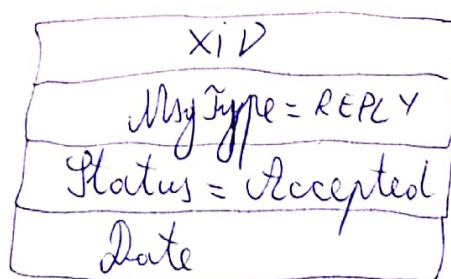 XiD
MsgType = REPLY
Status = Accepted
Date